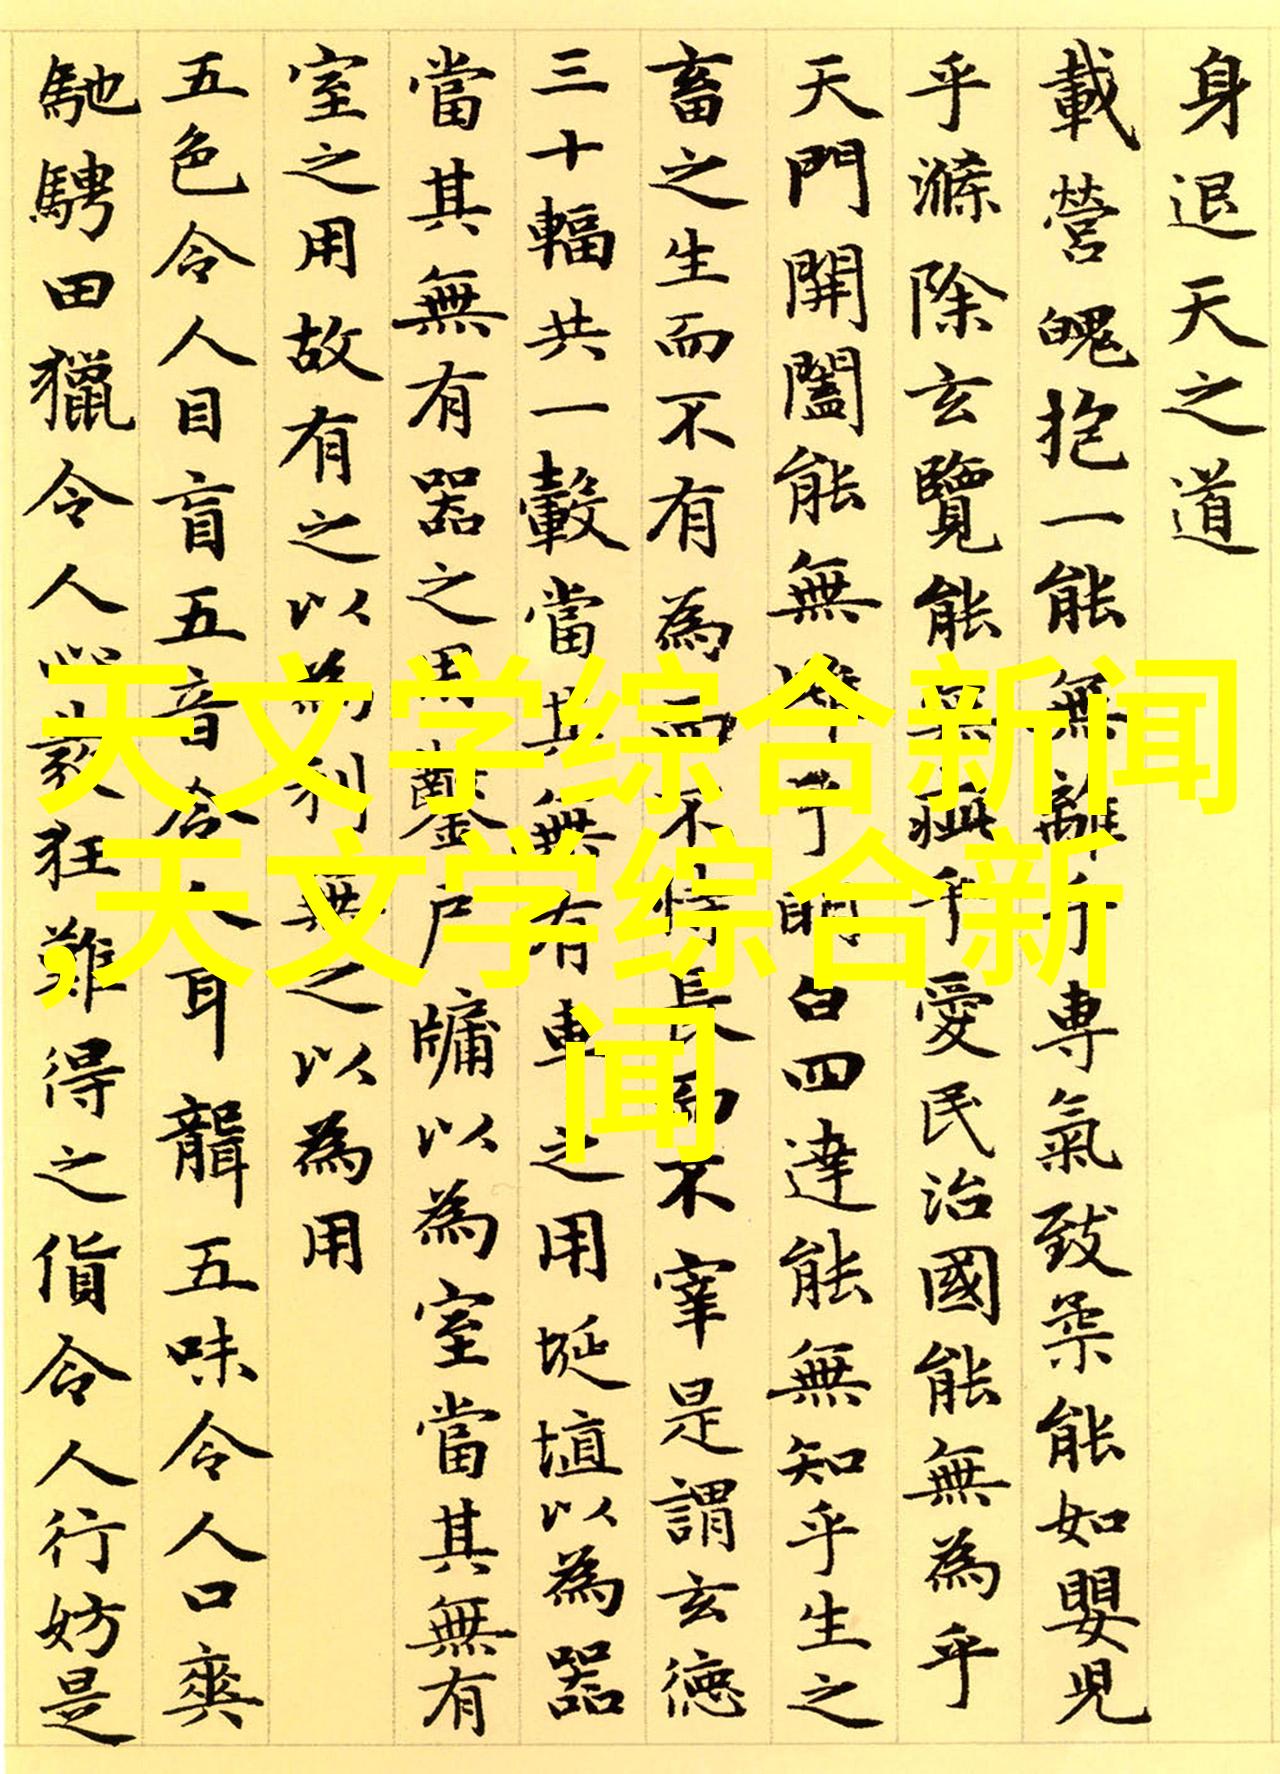 身退天之道
載營魄抱一能無離乎專氣致柔能如嬰兒
乎滌除玄覽能無疵乎愛民治國能無為乎
天門開闔能無雌乎明白四達能無知乎生之
畜之生而不有為而不恃長而不宰是謂玄德
三十輻共一轂當其無有車之用埏埴以為器
當其無有器之用鑿戶牖以為室當其無有
室之用故有之以為利無之以為用
五色令人目盲五音令人耳聾五味令人口爽
馳騁田獵令人心發狂難得之貨令人行妨是
天文学综合新闻
,天文学综合新
闻